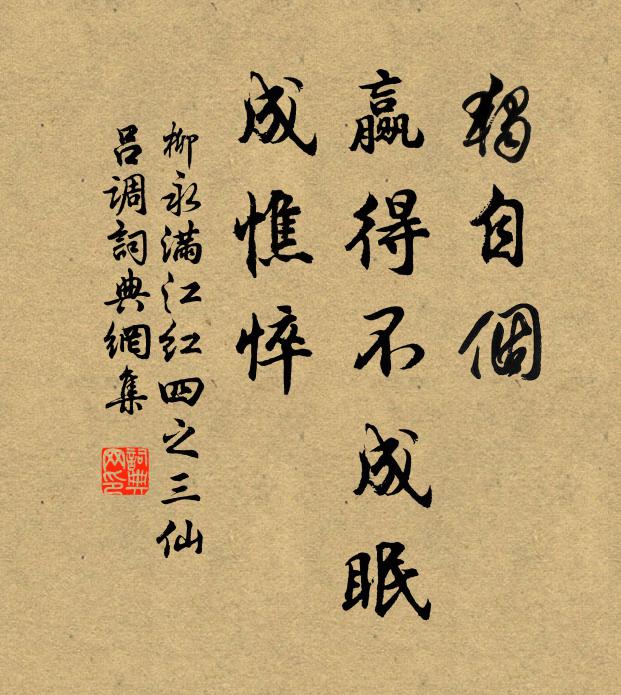 獨自個
贏得不成眠
成憔悴
柳永滿江紅四之三仙
呂調詞典網集
詞典
网印